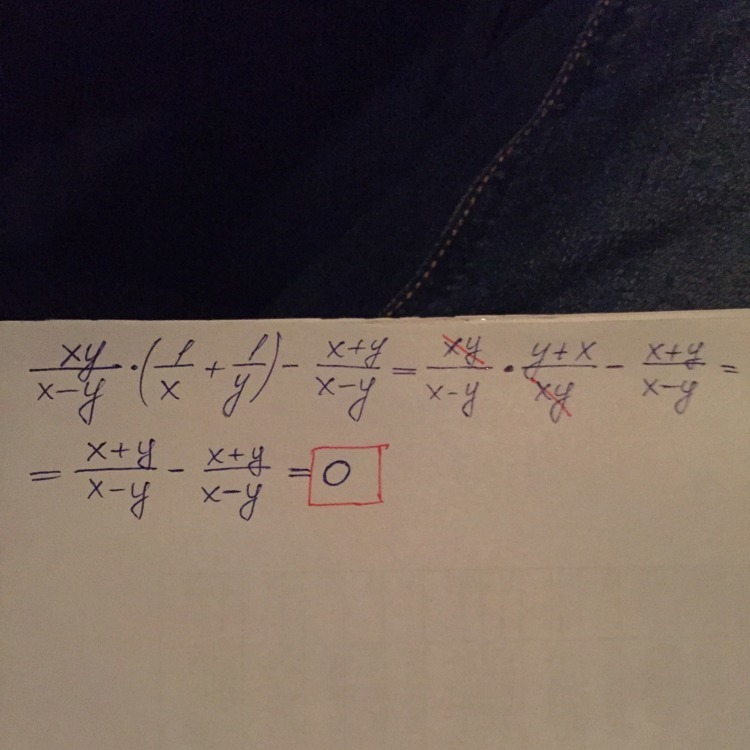 \frac{xy}{x-y} \cdot \left(\frac{1}{x} + \frac{1}{y}\right) - \frac{x+y}{x-y} = \frac{xy}{x-y} \cdot \frac{y+x}{xy} - \frac{x+y}{x-y} =
= \frac{x+y}{x-y} - \frac{x+y}{x-y} = 0